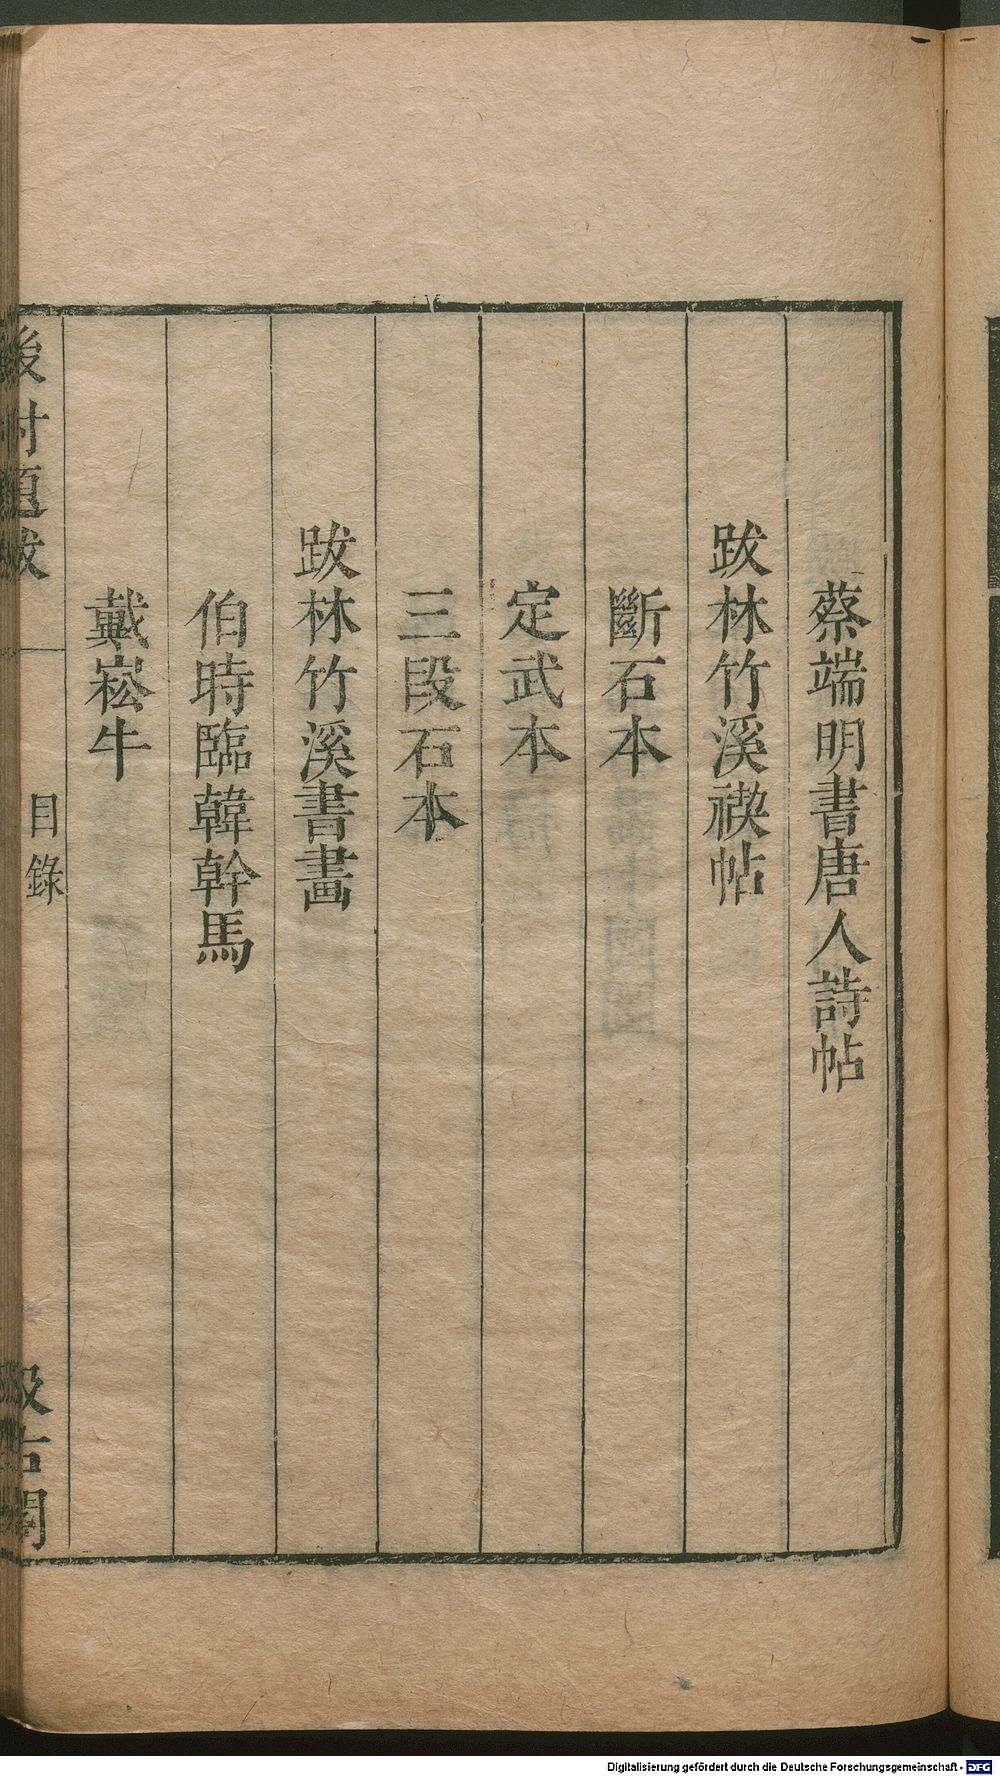 蔡端明書唐人詩帖
跋林竹溪禊帖
斷石本
定武本
三段石本
跋林竹溪書畫
伯時臨韓幹馬
戴嵩牛
後村題跋
目錄
汲古閣
Digitalisierung gefördert durch die Deutsche Forschungsgemeinschaft - DFG